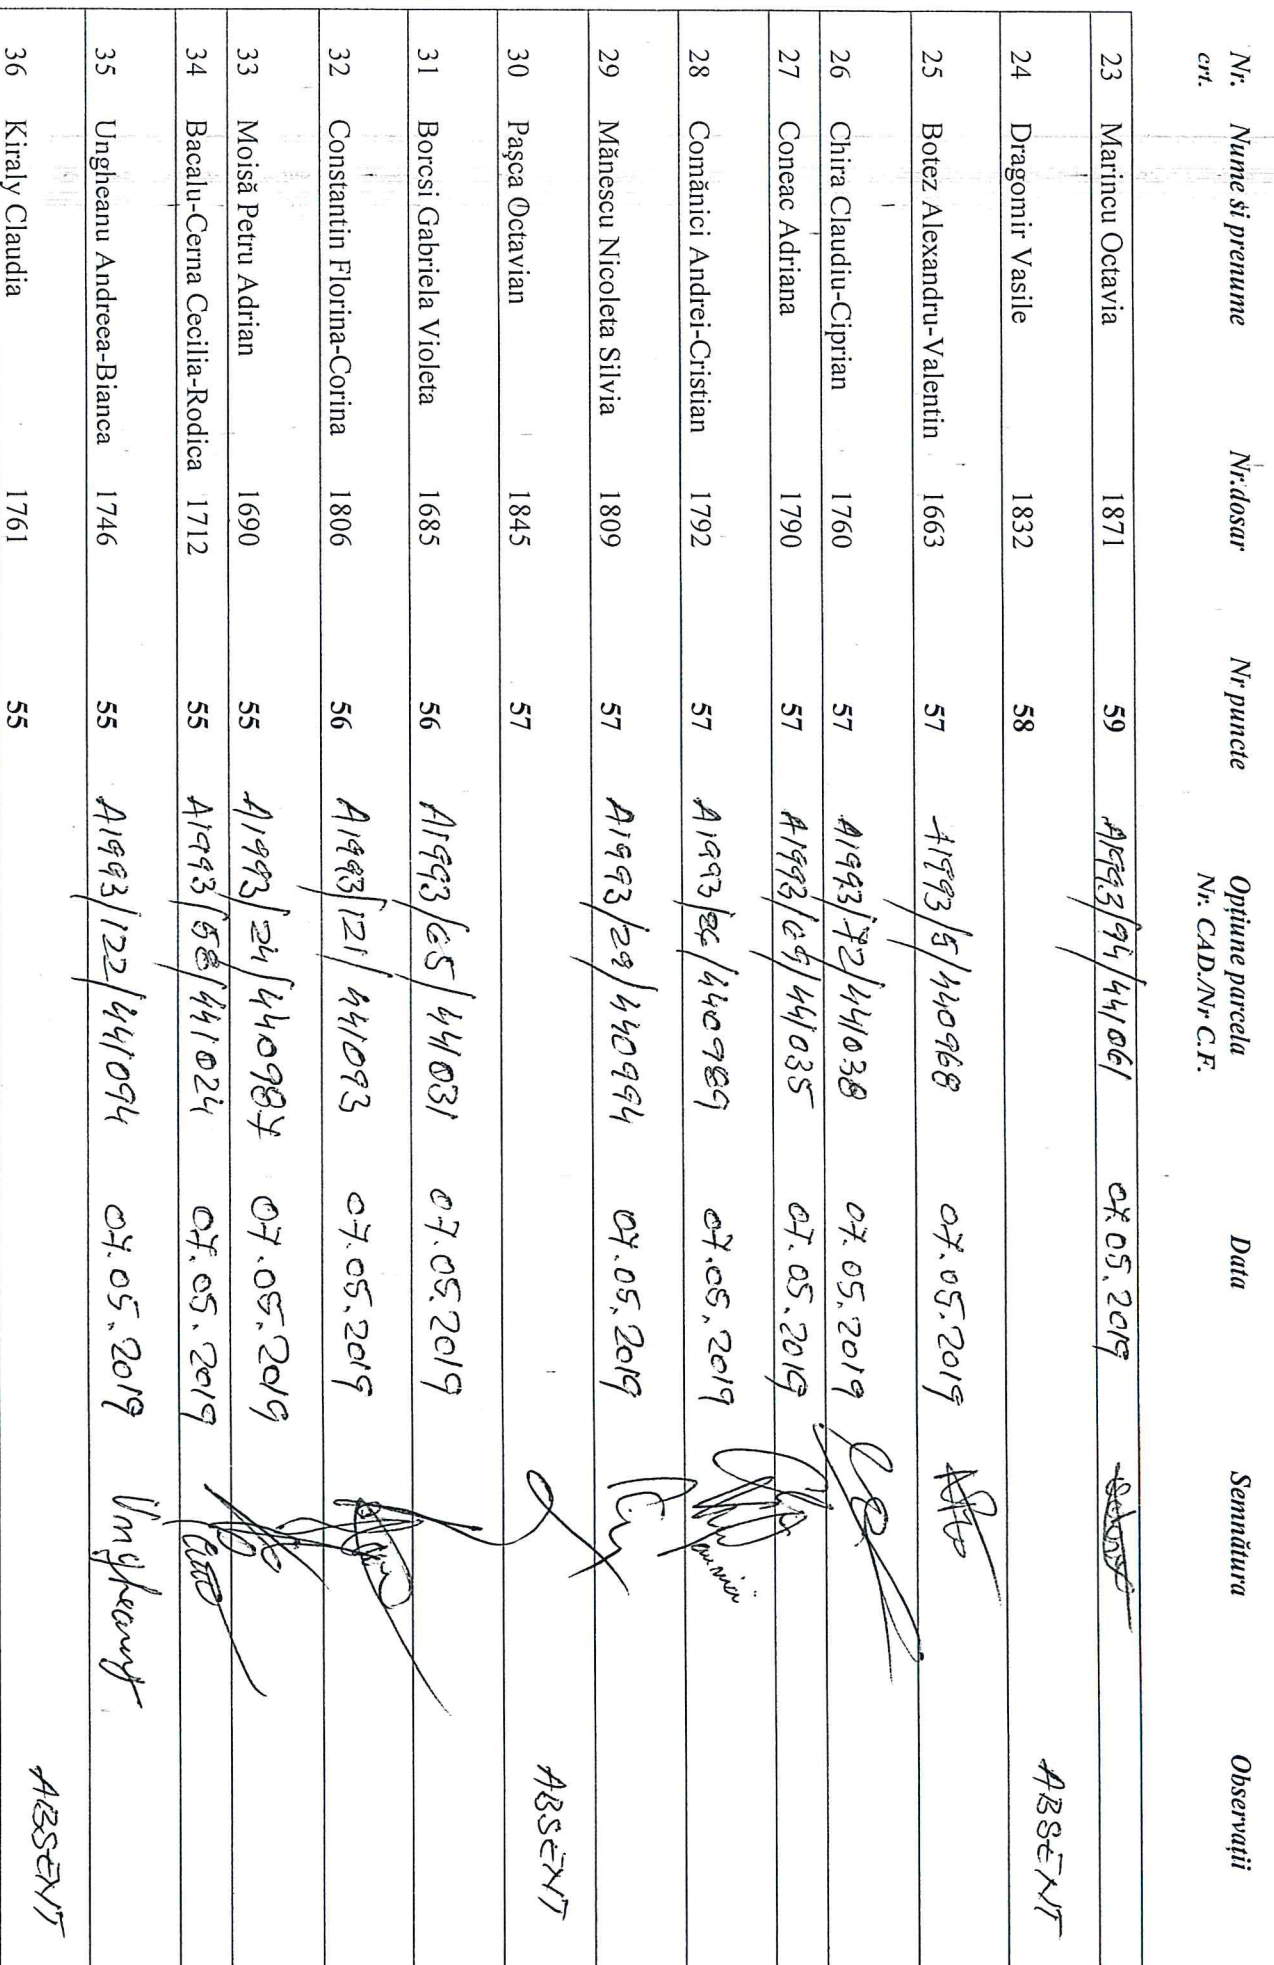 Nr. crt. Nume si prenume Nr.dosar Nr puncte Opțiune parcela Nr. CAD./Nr C.F. Data Semnătura Observații
23 Marincu Octavia 1871 59 A1993/94/441061 07.05.2019
24 Dragomir Vasile 1832 58 ABSENT
25 Botez Alexandru-Valentin 1663 57 A1993/5/440968 07.05.2019
26 Chira Claudiu-Ciprian 1760 57 A1993/72/441038 07.05.2019
27 Coneac Adriana 1790 57 A1993/69/441035 07.05.2019
28 Comănici Andrei-Cristian 1792 57 A1993/26/440989 07.05.2019
29 Mănescu Nicoleta Silvia 1809 57 A1993/29/440994 07.05.2019
30 Pașca Octavian 1845 57 ABSENT
31 Borcsi Gabriela Violeta 1685 56 A1993/65/441031 07.05.2019
32 Constantin Florina-Corina 1806 56 A1993/121/441093 07.05.2019
33 Moisă Petru Adrian 1690 55 A1993/24/440987 07.05.2019
34 Bacalu-Cerna Cecilia-Rodica 1712 55 A1993/58/441024 07.05.2019
35 Ungheanu Andreea-Bianca 1746 55 A1993/122/441094 07.05.2019 Ungheanu
36 Kiraly Claudia 1761 55 ABSENT